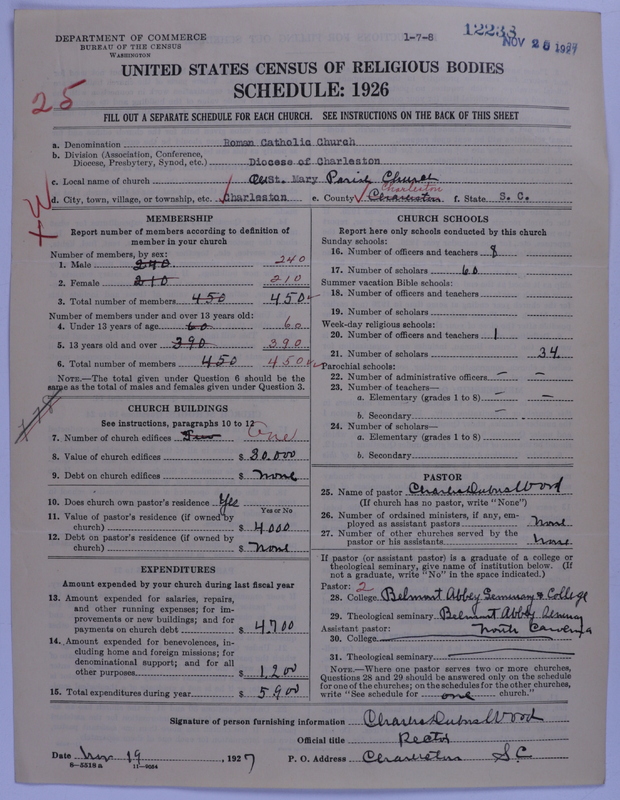 DEPARTMENT OF COMMERCE
BUREAU OF THE CENSUS
WASHINGTON
1-7-8
12238
NOV 26 1927
UNITED STATES CENSUS OF RELIGIOUS BODIES
SCHEDULE: 1926
25
FILL OUT A SEPARATE SCHEDULE FOR EACH CHURCH. SEE INSTRUCTIONS ON THE BACK OF THIS SHEET
a. Denomination Roman Catholic Church
b. Division (Association, Conference, Diocese, Presbytery, Synod, etc.) Diocese of Charleston
c. Local name of church St. Mary Parish Church
d. City, town, village, or township, etc. Charleston e. County Charleston Charleston f. State S. C.
MEMBERSHIP
Report number of members according to definition of
member in your church
Number of members, by sex:
1. Male 240 240
2. Female 210 210
3. Total number of members 450 450
Number of members under and over 13 years old:
4. Under 13 years of age 60 60
5. 13 years old and over 390 390
6. Total number of members 450 450
NOTE.—The total given under Question 6 should be the
same as the total of males and females given under Question 3.
CHURCH BUILDINGS
See instructions, paragraphs 10 to 12
7. Number of church edifices Two One
8. Value of church edifices $ 30.000
9. Debt on church edifices $ None
10. Does church own pastor's residence Yes
Yes or No
11. Value of pastor's residence (if owned by
church) $ 4000
12. Debt on pastor's residence (if owned by
church) $ None
EXPENDITURES
Amount expended by your church during last fiscal year
13. Amount expended for salaries, repairs,
and other running expenses; for im-
provements or new buildings; and for
payments on church debt $ 4700
14. Amount expended for benevolences, in-
cluding home and foreign missions; for
denominational support; and for all
other purposes $ 1200
15. Total expenditures during year $ 5900
CHURCH SCHOOLS
Report here only schools conducted by this church
Sunday schools:
16. Number of officers and teachers 8
17. Number of scholars 60
Summer vacation Bible schools:
18. Number of officers and teachers
19. Number of scholars
Week-day religious schools:
20. Number of officers and teachers 1
21. Number of scholars 34
Parochial schools:
22. Number of administrative officers — —
23. Number of teachers—
a. Elementary (grades 1 to 8) — —
b. Secondary —
24. Number of scholars—
a. Elementary (grades 1 to 8)
b. Secondary
PASTOR
25. Name of pastor Charles Dubois Wood
(If church has no pastor, write "None")
26. Number of ordained ministers, if any, em-
ployed as assistant pastors None
27. Number of other churches served by the
pastor or his assistants None
If pastor (or assistant pastor) is a graduate of a college or
theological seminary, give name of institution below. (If
not a graduate, write "No" in the space indicated.)
Pastor: 2
28. College Belmont Abbey Seminary & College
29. Theological seminary Belmont Abbey Seminary
Assistant pastor: North Carolina
30. College
31. Theological seminary
NOTE.—Where one pastor serves two or more churches,
Questions 28 and 29 should be answered only on the schedule
for one of the churches; on the schedules for the other churches,
write "See schedule for one church."
Signature of person furnishing information Charles Dubois Wood
Official title Rector
Date Nov 19, 1927 P. O. Address Charleston S C
8-5518 a 11-9684